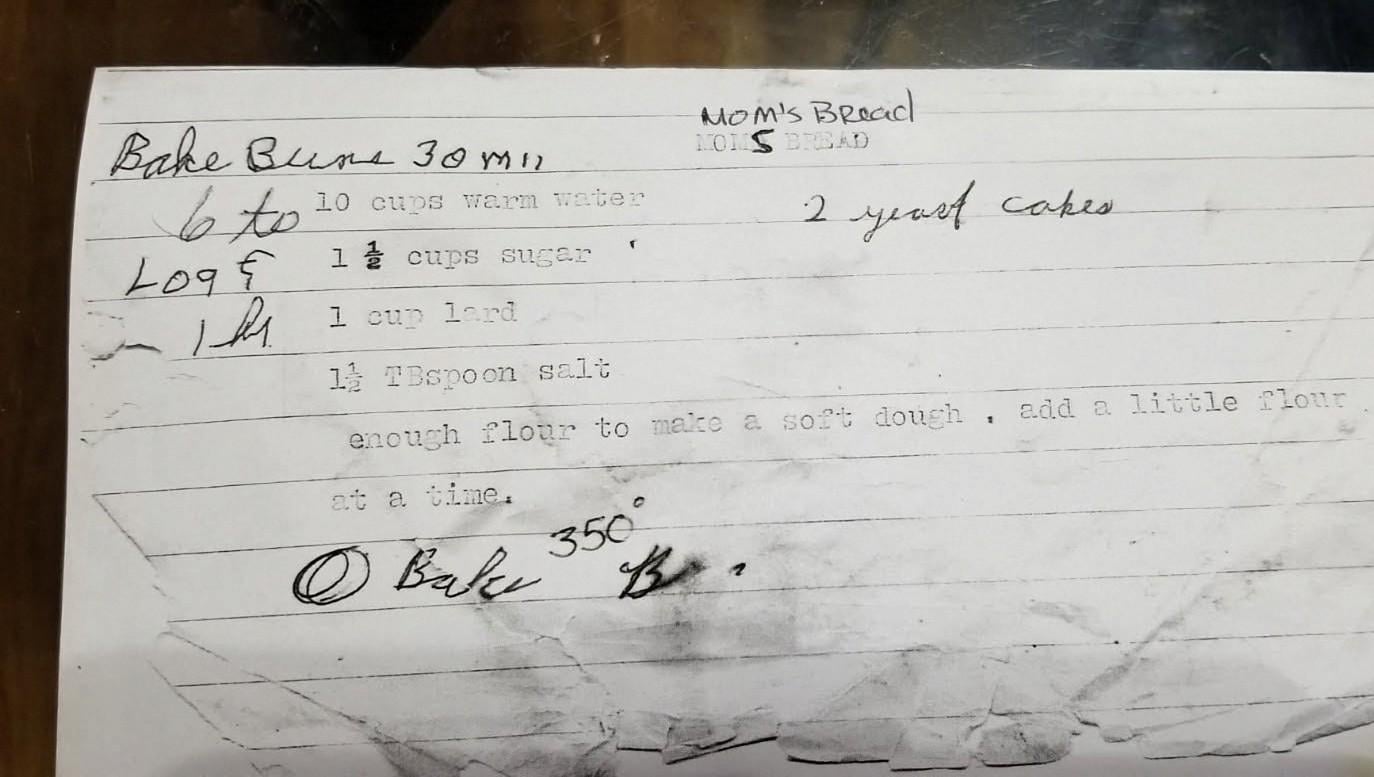 MOM'S BRead
MOMS BREAD
Bake Buns 30 min
6 to 10 cups warm water
2 yeast cakes
Loaf 1 ½ cups sugar
1 hr 1 cup lard
1½ TBspoon salt
enough flour to make a soft dough , add a little flour
at a time.
Bake 350°